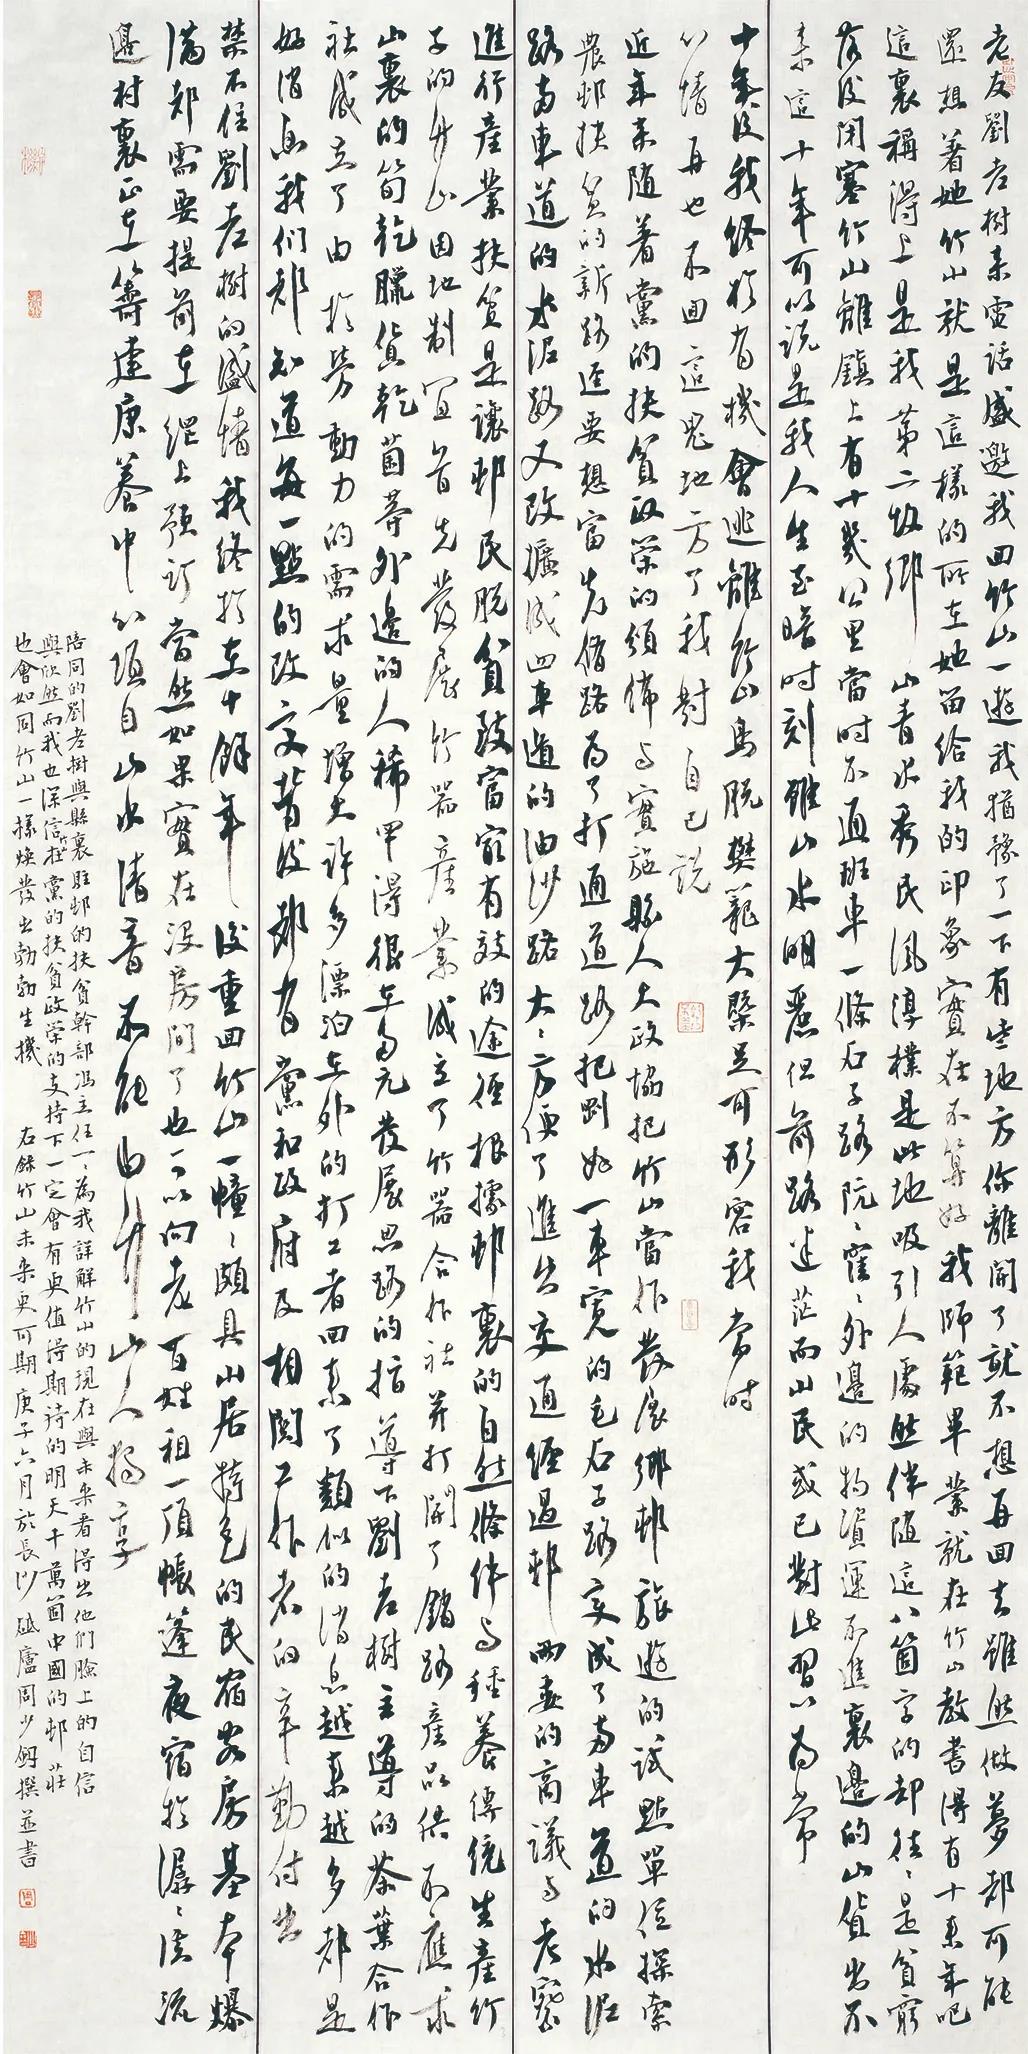 老友劉老樹來電話盛邀我回竹山一遊我猶豫了一下有些地方你離開了就不想再回去雖然做夢都可能
還想着她竹山就是這樣的所在她留給我的印象實在不算好我師範畢業就在竹山教書得有十來年吧
這裏稱得上是我第二故鄉 山青水秀民風淳樸是此地吸引人處然伴隨這八箇字的却往往是貧窮
落後閉塞竹山離鎮上有十幾公里當時不通班車一條石子路阬阬窪窪外邊的物資運不進裏邊的山貨出不
來這十年可以説是我人生至暗时刻雖山水明麗但前路迷茫而山民或已對此習以為常
十年後我終於有機會逃離竹山鳥脱樊籠大槩足可形容我當时
心情再也不回這鬼地方了我對自己説
近年來随着黨的扶貧政策的頒佈与實施縣人大政協把竹山當作發展鄉邨旅遊的試點單位探索
農邨扶貧的新路逕要想富先脩路為了打通道路把剛好一車寬的毛石子路变成了兩車道的水泥
路兩車道的水泥路又改擴成四車道的油沙路大大方便了進出交通經過邨兩委的商議与考察
進行產業扶貧是讓邨民脱貧致富最有效的途徑根據邨裏的自然條件与種養傳統生產竹
子的竹山因地制宜首先發展竹器產業成立了竹器合作社并打開了銷路產品供不應求
山裏的筍乾臘貨乾菌等外邊的人稀罕得很在多元發展思路的指導下劉老樹主導的茶葉合作
社成立了由於勞動力的需求量增大許多漂泊在外的打工者回来了類似的消息越来越多都是
好消息我们都知道每一點的改变背後都有黨和政府及相關工作者的辛勤付出
禁不住劉老樹的盛情我終於在十餘年後重回竹山一幢幢頗具山居特色的民宿客房基本爆
滿都需要提前在網上預訂當然如果實在沒房間了也可以向老百姓租一頂帳篷夜宿於潺潺溪流
邊村裏正在籌建康養中心項目山水清音不能由竹山人獨享
陪同的劉老樹與縣裏駐邨的扶貧幹部馮主任一一為我詳解竹山的現在與未來看得出他們臉上的自信
與欣然而我也深信在黨的扶貧政策的支持下一定會有更值得期待的明天千萬箇中國的邨莊
也會如同竹山一樣煥發出勃勃生機 右録竹山未來更可期庚子六月於長沙砥廬周少劍撰並書